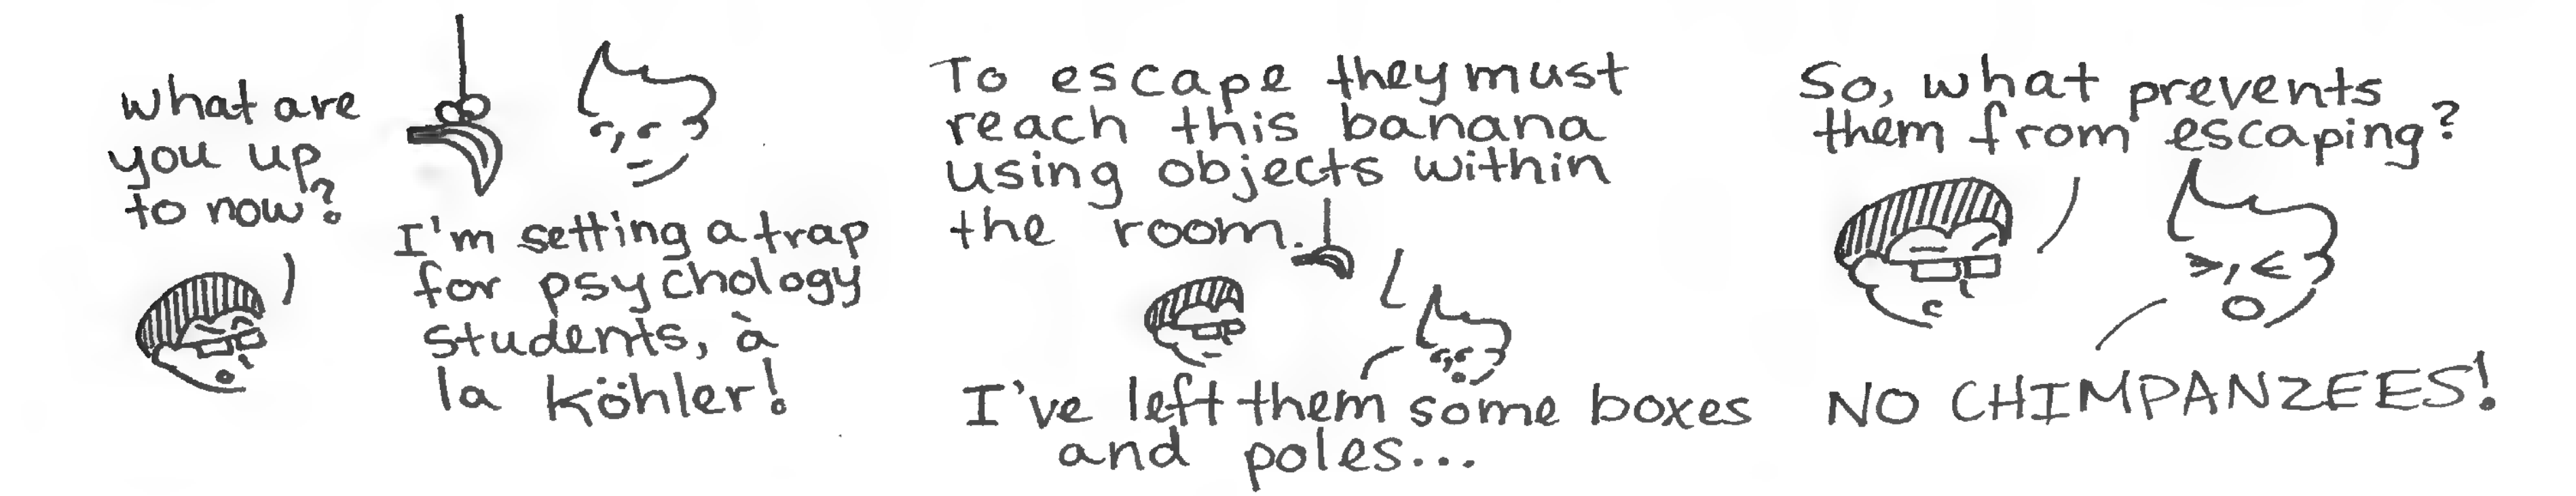 What are
you up
to now?
I'm setting a trap
for psychology
students, à
la Köhler!
To escape they must
reach this banana
using objects within
the room.
I've left them some boxes
and poles...
So, what prevents
them from escaping?
NO CHIMPANZEES!